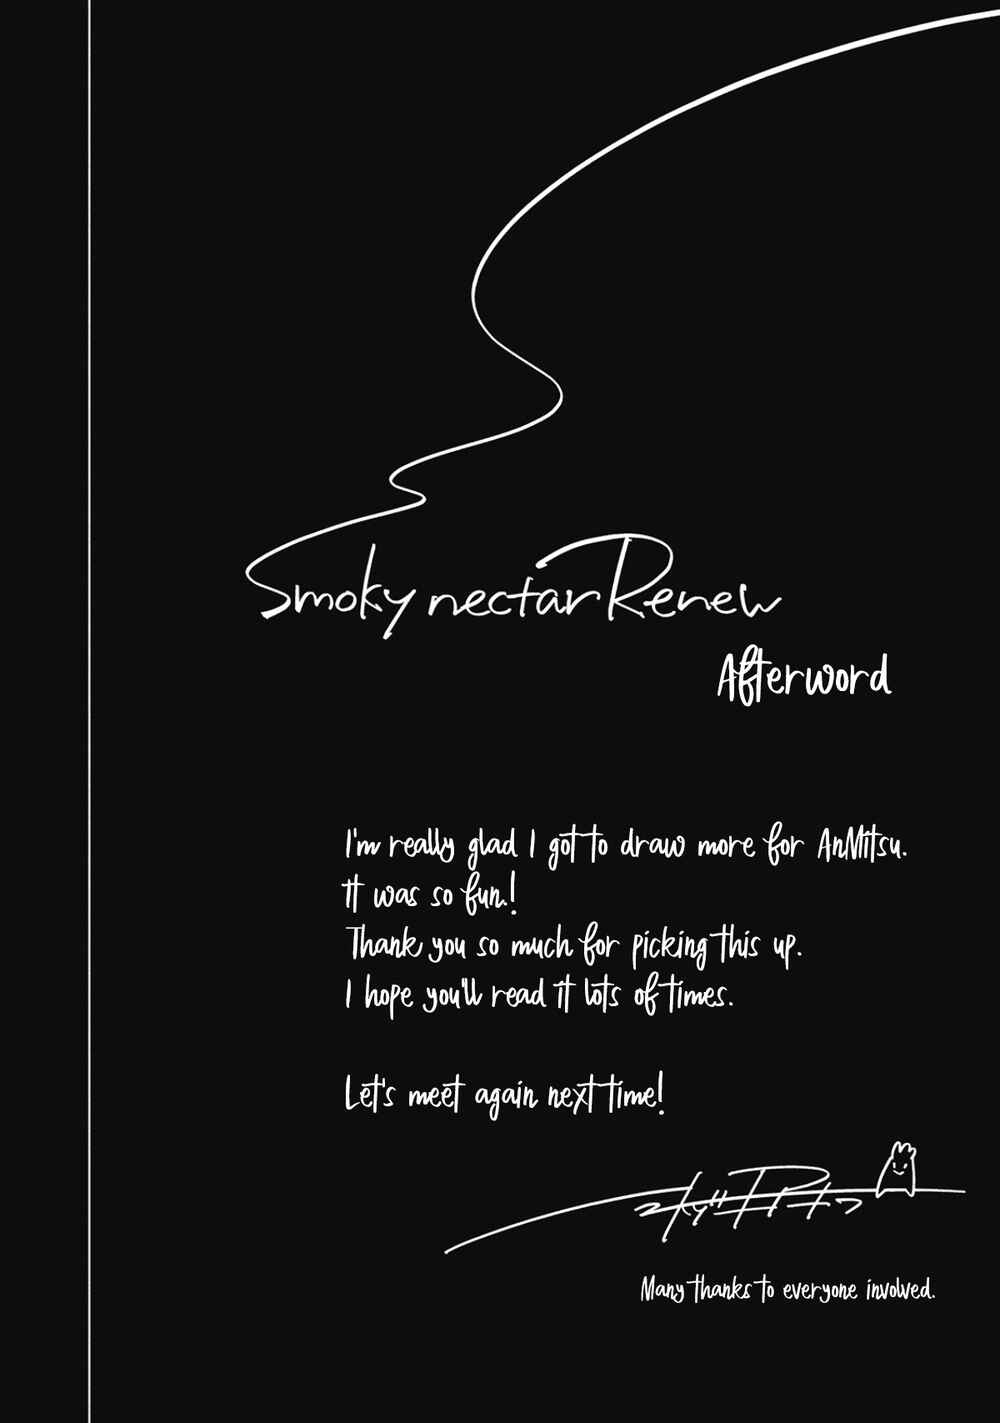 Smoky nectar Renew
Afterword
I'm really glad I got to draw more for AnMitsu.
It was so fun.!
Thank you so much for picking this up.
I hope you'll read it lots of times.
Let's meet again next time!
Many thanks to everyone involved.